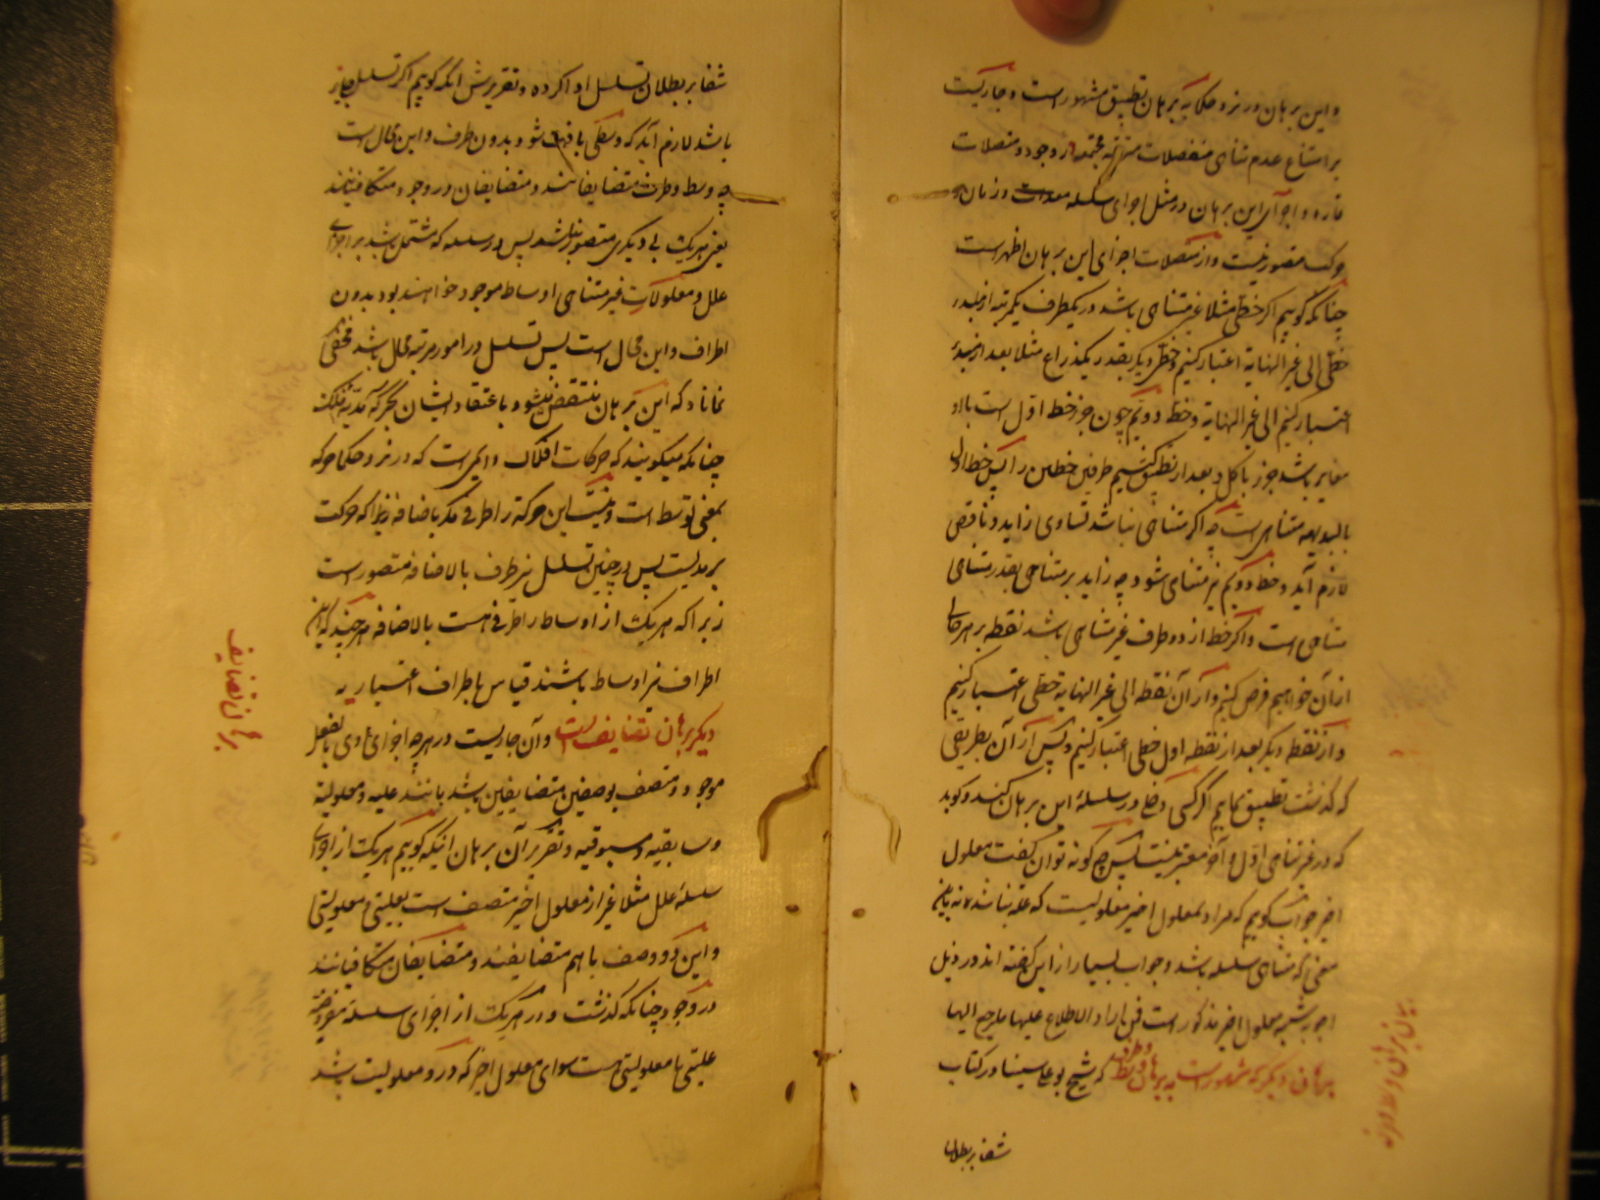 و این برهان در نزد حکما به برهان تطبیق مشهور است و جاریست
بر امتناع عدم تناهی منفصلات مترتبه مجتمعه در وجود و متصلات
قاره و اجرای این برهان در مثل اجزای سلسله معدات و زمان و
حرکت متصور نیست و از متصلات اجزای این برهان اظهر است
چنانکه گوییم اگر خطی مثلا غیر متناهی باشد در یکطرف یکمرتبه از مبدء
خطی الی غیر النهایة اعتبار کنیم و خطی دیگر بقدر یکذراع مثلا بعد از مبدء
اعتبار کنیم الی غیر النهایة و خط دویم چون جزء خط اول است باید
مغایر باشد جزء با کل و بعد از تطبیق کنیم طرفین خطین را پس خط اول
بالبدیهه متناهی است چه اگر متناهی نباشد تساوی زاید و ناقص
لازم آید و خط دویم نیز متناهی شود چه زاید بر متناهی بقدر متناهی
متناهی است و اگر خط از دو طرف غیر متناهی باشد نقطه بر هر جای
از آن خواهیم فرض کنیم و از آن نقطه الی غیر النهایة خطی اعتبار کنیم
و از نقطه دیگر بعد از نقطه اول خطی اعتبار کنیم و پس از آن بطریقی
که گذشت تطبیق نماییم اگر کسی دخل در سلسلهٔ این برهان کند و گوید
که در غیر متناهی اول و آخر معتبر نیست پس چگونه توان گفت معلول
اخیر جواب گوییم که مراد بمعلول اخیر معلولیست که علة نباشد نه باین
معنی که متناهی سلسله باشد و جواب بسیار از این گفته اند در ذیل
اجوبه شبهه معلول اخیر مذکور است فمن اراد الاطلاع علیها فلیرجع الیها
برهان دیگر که مشهور است به برهان وسط و طرف که شیخ بو علی سینا در کتاب
شفا بر بطلان
بیان برهان وسط و طرف
شفا بر بطلان تسلسل ادا کرده و تقریرش آنکه گوییم اگر تسلسل جایز
باشد لازم آید که وسطی یافت شود بدون طرف و این محال است
چه وسط و طرف متضایفانند و متضایفان در وجود متکافئند
یعنی هریک بی دیگری متصور نباشد پس در سلسله که مشتمل باشد بر اجزای
علل و معلولات غیر متناهی اوساط موجود خواهند بود بدون
اطراف و این محال است پس تسلسل در امور مرتبه محال باشد مخفی
نماناد که این برهان منتقض میشود باعتقاد ایشان بحرکة سرمدیه فلک
چنانکه میگویند که حرکات افلاک دایمی است که در نزد حکما حرکه
بمعنی توسط است و نیست این حرکة را طرفی مگر باضافه زیرا که حرکت
سرمدیست پس در چنین تسلسل نیز طرف بالاضافه متصور است
زیرا که هریک از اوساط را طرفی هست بالاضافه هرچند که این
اطراف نیز اوساط باشند قیاس باطراف اعتباریه
دیگر برهان تضایف است و آن جاریست در هرچه اجزای مادی بالفعل
موجود و متصف بوصفین متضایفین باشد مانند علیه و معلولیه
و سابقیه و مسبوقیه و تقریر آن برهان اینکه گوییم هریک از اجزای
سلسلهٔ علل مثلا غیر از معلول اخیر متصف است بعلیتی و معلولیتی
و این دو وصف با هم متضایفند و متضایفان متکافیانند
در وجود چنانکه گذشت و در هریک از اجزای سلسله مفروضه
علیتی با معلولیتی هست سوای معلول اخیر که در او معلولیت باشد
برهان تضایف